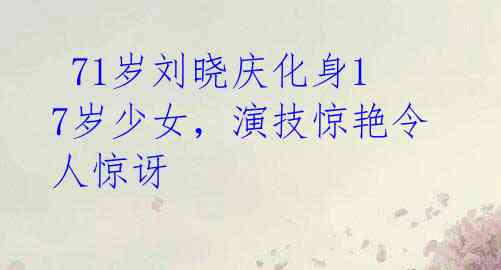 71岁刘晓庆化身1
7岁少女，演技惊艳令
人惊讶